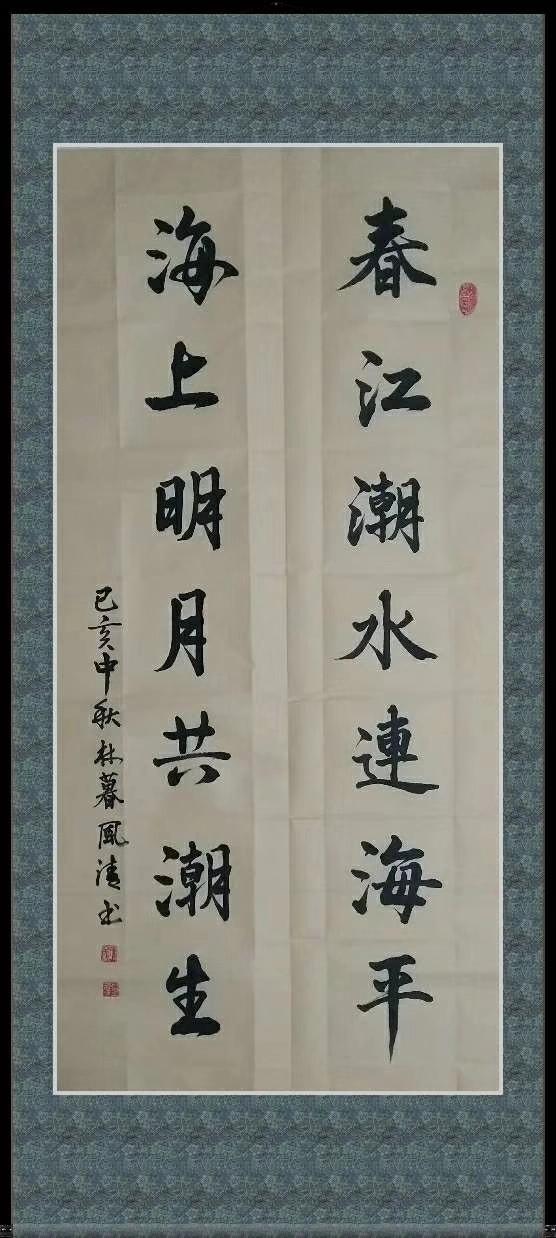 春江潮水連海平
海上明月共潮生
己亥中秋林暮風清书